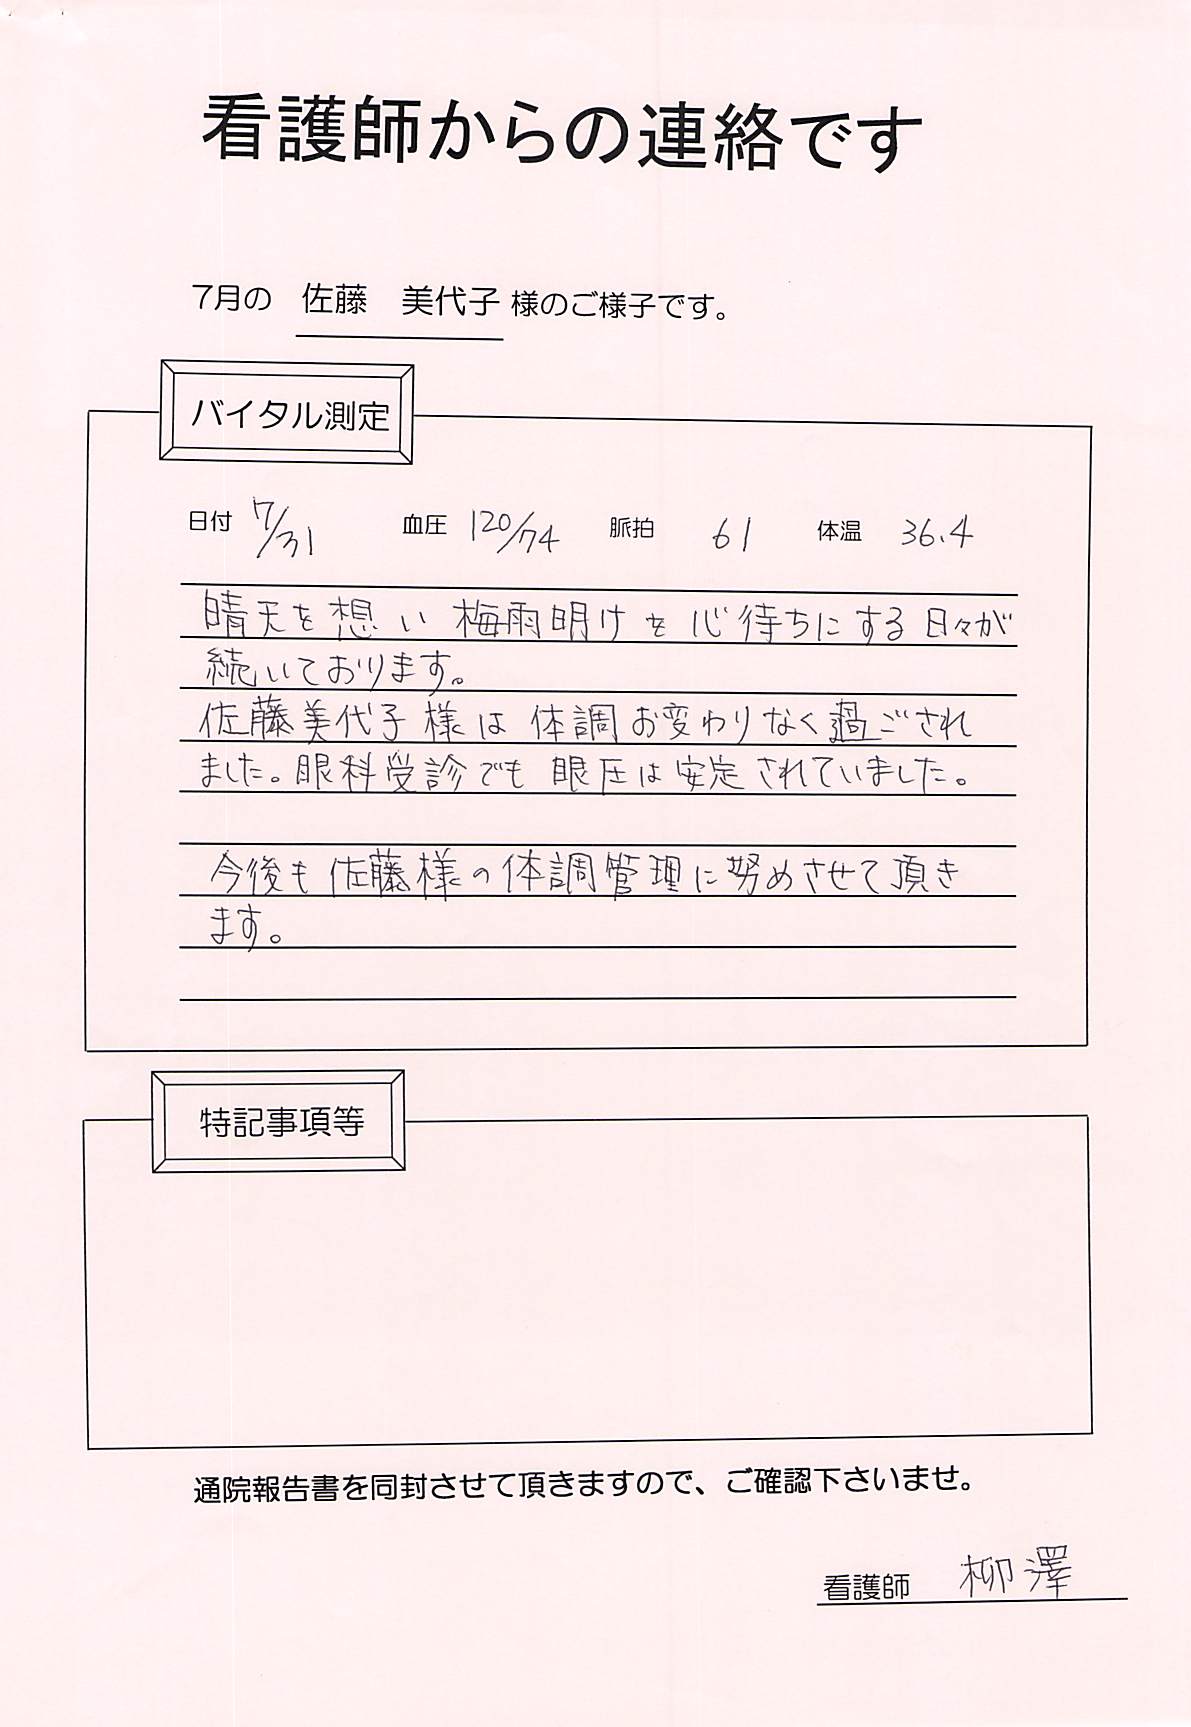 看護師からの連絡です
7月の　佐藤　美代子 様のご様子です。
バイタル測定
日付 7/31 血圧 120/74 脈拍 61 体温 36.4
晴天を想い梅雨明けを心待ちにする日々が
続いております。
佐藤美代子様は体調お変わりなく過ごされ
ました。眼科受診でも眼圧は安定されていました。
今後も佐藤様の体調管理に努めさせて頂き
ます。
特記事項等
通院報告書を同封させて頂きますので、ご確認下さいませ。
看護師 柳澤